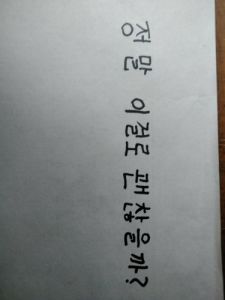 정말 이걸로 괜찮을까?